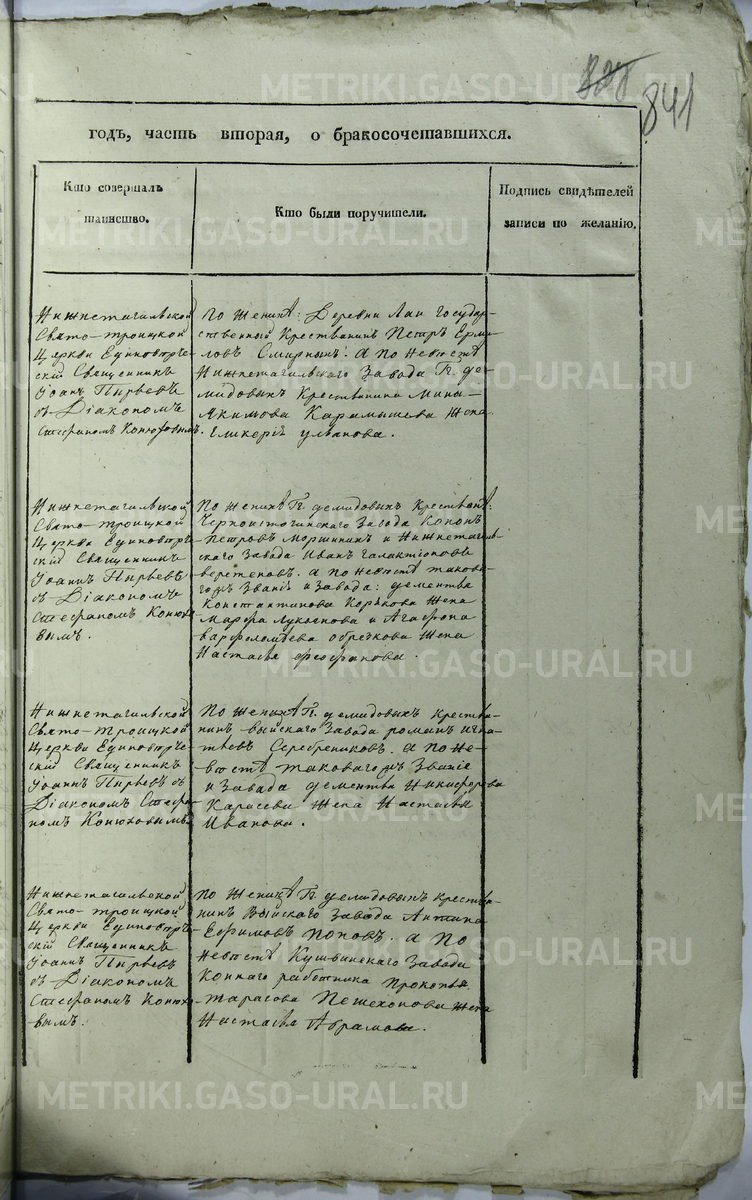 841
годъ, часть вторая, о бракосочетавшихся.
Кто совершалъ
таинство.
Кто были поручители.
Подпись свидѣтелей
записи по желанію.
Нижнетагильской
Свято-троицкой
Церкви Единовѣрче-
скій Священникъ
Иоаннъ Пырьевъ
съ Діакономъ
Стефаномъ Конюховымъ.
По женихѣ: Деревни Лаи государ-
ственный Крестьянинъ Петръ Ерми-
ловъ Смирныхъ. а по невѣстѣ
Нижнетагильскаго Завода Гг. де-
мидовыхъ Крестьянина Мины
Якимова Карамышева жена
Гликерія ульянова.
Нижнетагильской
Свято-троицкой
Церкви Единовѣрче-
скій Священникъ
Иоаннъ Пырьевъ
съ Діакономъ
Стефаномъ Конюхо-
вымъ.
По женихѣ Гг. демидовыхъ Крестьяне:
Черноисточинскаго Завода Кононъ
Петровъ Моршининъ и Нижнетагиль-
скаго Завода Иванъ галактіоновъ
веретеновъ. а по невѣстѣ таковa-
гожъ званія и завода: дементья
Константинова Корякова жена
Марфа Лукоянова и Агафона
варфоломѣева обрезкова жена
Настасья феофанова.
Нижнетагильской
Свято-троицкой
Церкви Единовѣрче-
скій Священникъ
Иоаннъ Пырьевъ съ
Діакономъ Стефа-
номъ Конюховымъ.
По женихѣ Гг. демидовыхъ крестья-
нинъ выйскаго Завода романъ игна-
тьевъ Серебренниковъ. а по не-
вѣстѣ таковагожъ званія
и завода дементья Никифорова
Карасева жена Настасья
Иванова.
Нижнетагильской
Свято-троицкой
Церкви Единовѣрче-
скій Священникъ
Иоаннъ Пырьевъ
съ Діакономъ
Стефаномъ Конюхо-
вымъ.
По женихѣ Гг. демидовыхъ крестья-
нинъ Выйскаго Завода Антипа
Ефимовъ Поповъ. а по
невѣстѣ Кушвинскаго Завода
Коннаго работника Прокопья
тарасова Пешехонова жена
Настасья Абрамова.
METRIKI.GASO-URAL.RU
METRIKI.GASO-URAL.RU
METRIKI.GASO-URAL.RU
METRIKI.GASO-URAL.RU
METRIKI.GASO-URAL.RU
METRIKI.GASO-URAL.RU
METRIKI.GASO-URAL.RU
METRIKI.GASO-URAL.RU